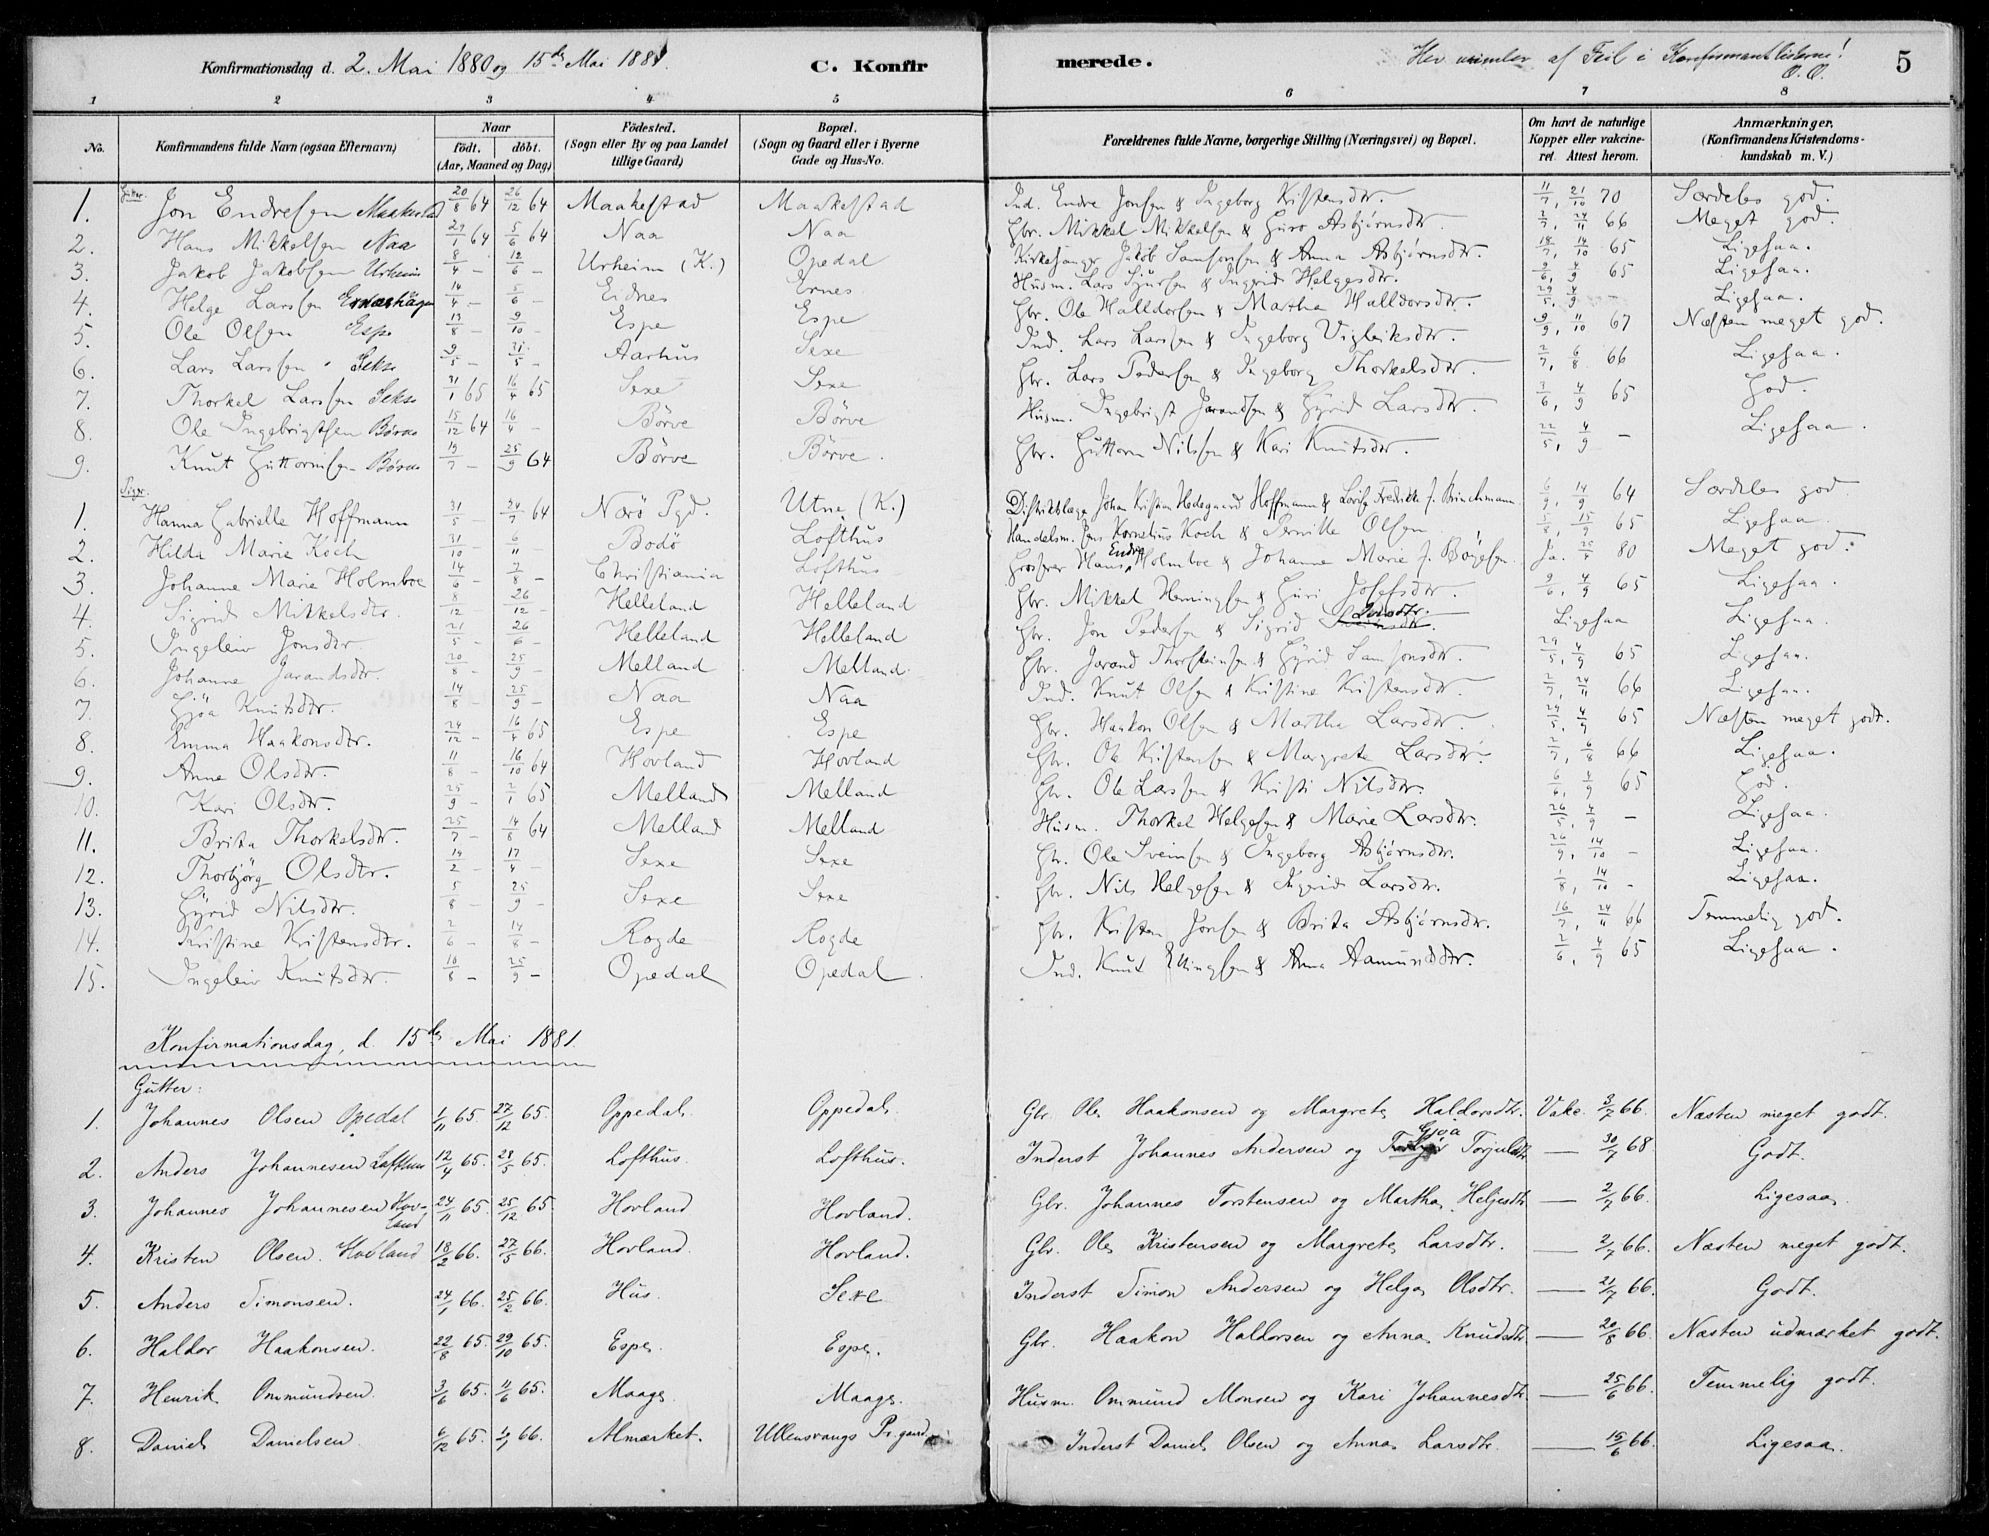 Konfirmationsdag d. 2. Mai 1880 og 15de Mai 1881. C. Konfirmerede. Her vrimler af Feil i Konfirmantlisterne! O. O. 5
1 2 3 4 5 6 7 8
No. Konfirmandens fulde Navn (ogsaa Efternavn) Naar födt. döbt. (Aar, Maaned og Dag) Födested. (Sogn eller By og paa Landet tillige Gaard) Bopæl. (Sogn og Gaard eller i Byerne Gade og Hus-No. Forældrenes fulde Navne, borgerlige Stilling (Næringsvei) og Bopæl. Om havt de naturlige Kopper eller vakcineret. Attest herom. Anmærkninger. (Konfirmandens Kristendomskundskab m. V.)
Gutter.
1. Jon Endresen Maakestad 20/8 64 26/12 64 Maakestad Maakestad Ind. Endre Jonsen & Ingeborg Kistensdtr. 11/7, 21/10 70 Særdeles god.
2. Hans Mikkelsen Naa 29/1 64 5/6 64 Naa Naa Gbr. Mikkel Mikkelsen & Guro Asbjørnsdtr. 2/7, 24/11 66 Meget god.
3. Jakob Jakobsen Urheim 8/4 – 12/6 – Urheim (K.) Opedal Kirkesanger Jakob Samsonsen & Anna Asbjørnsdtr. 18/7, 14/10 65 Ligesaa.
4. Helge Larssen 14/4 – 5/6 – Eidnes Ernes Husm. Lars Sjursen & Ingrid Helgesdtr. 9/6, 4/9 65 Ligesaa.
5. Ole Olsen Espe 13/8 – 9/10 – Espe Espe Gbr. Ole Halldorsen & Martha Halldorsdtr. 29/5, 4/9 – Ligesaa.
6. Lars Larssen Sekse 9/5 – 31/5 – Aarhus Sexe Ind. Lars Larssen & Ingeborg Vigleiksdtr. 9/9, 11/10 67 Næsten meget god.
7. Thorkel Larssen Sekse 31/1 65 16/4 65 Sexe Sexe Gbr. Lars Pedersen & Ingeborg Thorkelsdtr. 2/7, 6/8 66 Ligesaa.
8. Ole Ingebrigtsen Børve 15/12 64 16/4 – Börve Börve Husm. Ingebrigt Jarandsen & Gyrid Larsdtr. 3/6, 4/9 65 God.
9. Knut Guttormsen Børve 19/7 – 25/9 64 Börve Börve. Gbr. Guttorm Nilsen & Kari Knutsdtr. 22/5, 4/9 – Ligesaa.
Piger.
1. Hanna Gabrielle Hoffmann 31/5 – 24/7 64 Nærö Pgd. Utne (K.) Distriktslæge Johan Kristian Hedegaard Hoffmann & Lovise Fredrikke f. Brinchmann 6/9, 14/9 64 Særdeles god
2. Hilda Marie Koch 31/10 – 6/11 – Bodö Lofthus Handelsm. Jens Kornelius Koch & Pernille Olsen 5/8, 15/9 65 Ligesaa.
3. Johanne Marie Holmboe 14/6 – 7/8 – Christiania Lofthus Grosserer Hans Endre Holmboe & Johanne Marie f. Böyesen. Ja. 25/4 80 Meget god.
4. Sigrid Mikkelsdtr. 8/12 – 26/12 – Helleland Helleland Gbr. Mikkel Henningsen & Guri Josefsdtr. 9/6, 4/9 65 Ligesaa.
5. Ingeleiv Jonsdtr. 21/5 – 26/6 – Helleland Helleland Gbr. Jon Pedersen & Sigrid Ligesaa Ligesaa.
6. Johanne Jarandsdtr. 20/8 – 25/9 – Melland Melland. Gbr. Jarand Thorsteinsen & Gyrid Samsonsdtr. 29/5, 4/9 65 Ligesaa.
7. Gjöa Knutsdtr. 14/8 25/9 – Naa Naa Ind. Knut Olsen & Kistine Kristensdtr. 2/7, 24/11 66 Ligesaa.
8. Emma Haakonsdtr. 24/12 – 16/4 65 Espe Espe Gbr. Haakon Olsen & Martha Larsdtr. 29/5, 4/9 65 Næsten meget godt.
9. Anne Olsdtr. 11/8 – 16/10 64 Hovland Hovland Gbr. Ole Kristensen & Margreta Larsdtr. 2/7, 6/8 66 Ligesaa.
10. Kari Olsdtr. 25/9 – 2/1 65 Melland Melland Gbr. Ole Larssen & Kristi Nilsdtr. 6/6, 4/9 65 God.
11. Brita Thorkelsdtr. 25/7 – 14/8 64 Melland Melland Husm. Thorkel Helgesen & Marie Larsdtr. 26/5, 4/9 – Ligesaa.
12. Thorbjörg Olsdtr. 14/2 – 17/4 – Sexe Sexe Gbr. Ole Sveinsen & Ingeborg Asbjørnsdtr. 26/9, 14/10 – Ligesaa.
13. Gyrid Nilsdtr. 5/8 – 25/9 – Sexe Sexe Gbr. Nils Helgesen & Ingrid Larsdtr. 1/8, 14/10 – Ligesaa.
14. Kristine Kristensdtr. 2/6 – 14/8 – Rogde Rogde Gbr. Kristen Jonsen & Brita Asbjørnsdtr. 16/7, 24/11 66 Temmelig god.
15. Ingeleiv Knutsdtr. 10/8 – 25/9 – Opedal Opedal. Ind. Knut Ellingsen & Anna Aamundsdtr. 2/6, 4/9 65 Ligesaa.
Konfirmationsdag, d. 15de Mai 1881.
Gutter:
1. Johannes Olsen Opedal 1/11 65. 27/12 65. Oppedal. Oppedal. Gbr. Ole Haakonsen og Margrete Haldorsdtr. Vakc. 3/7 66. Næsten meget godt.
2. Anders Johannesen Lofthus 12/4 65. 28/5 65. Lofthus. Lofthus. Inderst Johannes Andersen og Gjøa Torjulsdtr. — 30/7 68. Godt.
3. Johannes Johannesen Hovland 24/11 65. 25/12 65. Hovland Hovland. Gbr. Johannes Torstensen og Martha Helgesdtr. — 2/7 66. Ligesaa.
4. Kristen Olsen. Hovland 18/2 66. 27/5 66. Hovland. Hovland. Gbr. Ole Kristensen og Margrete Larsdtr. — 2/7 66. Næsten meget godt.
5. Anders Simonsen. 24/1 66. 25/2 66. Hus. Sexe Inderst Simon Andersen og Helga Olsdtr. — 21/7 66. Godt.
6. Haldor Haakonsen. 22/8 65. 29/10 65. Espe. Espe. Gbr. Haakon Haldorsen og Anna Knudsdtr. — 20/8 66. Næsten udmærket godt.
7. Henrik Ommundsen. 3/6 65. 11/6 65. Maage. Maage. Husm. Ommund Monsen og Kari Johannesdtr. — 25/6 66. Temmelig godt.
8. Daniel Danielsen 6/12 65. 4/1 66. Almærket. Ullensvangs Pr.gaard. Inderst Daniel Olsen og Anna Larsdtr. — 15/6 66. Ligesaa.